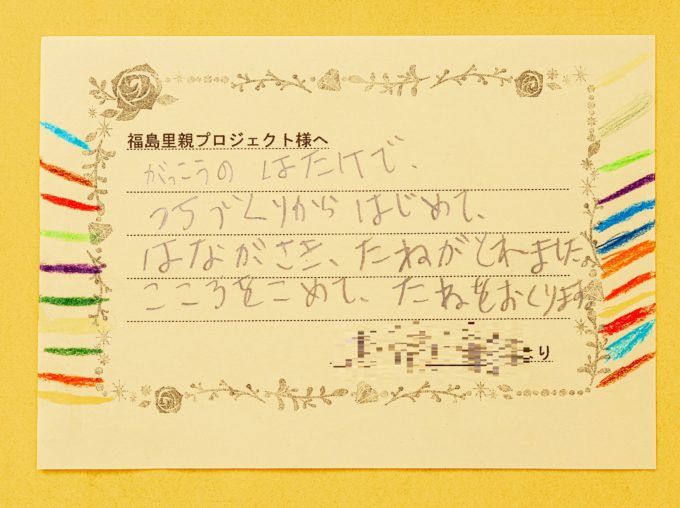 福島里親プロジェクト様へ
がっこうの はたけで、
つちづくりから はじめて、
はながさき、たねがとれました。
こころをこめて、たねをおくります。
より